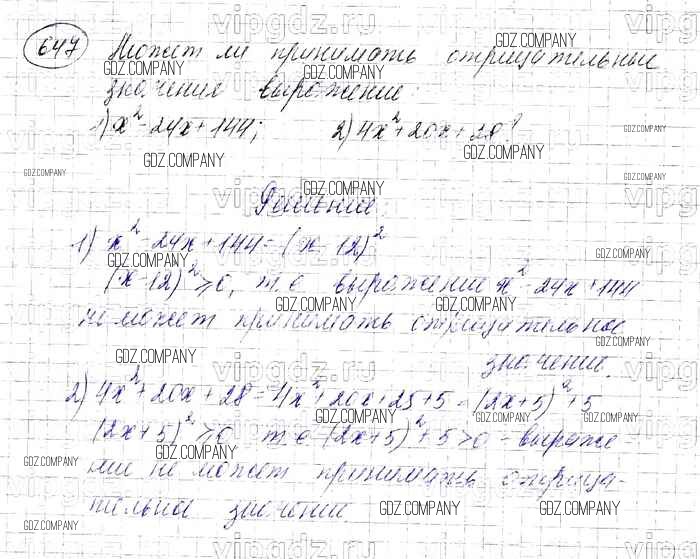 647 Может ли принимать отрицательные
значения выражение:
1) x² - 24x + 144; 2) 4x² + 20x + 28?
Решение.
1) x² - 24x + 144 = (x - 12)²
(x - 12)² ≥ 0, т.е выражение x² - 24x + 144
не может принимать отрицательное
значение.
2) 4x² + 20x + 28 = 4x² + 20x + 25 + 5 = (2x + 5)² + 5
(2x + 5)² ≥ 0 т.е (2x + 5)² + 5 > 0 - выраже
ние не может принимать отрица-
тельное значение
vipgdz.ru
GDZ.COMPANY